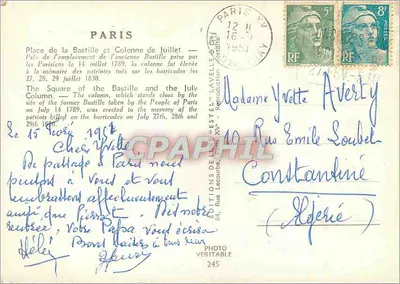 PARIS
Place de la Bastille et Colonne de Juillet. —
Près de l'emplacement de l'ancienne Bastille prise par
les Parisiens le 14 juillet 1789, la colonne fut élevée
à la mémoire des patriotes tués sur les barricades les
27, 28, 29 juillet 1830.
The Square of the Bastille and the July
Column. — The column, which stands close by the
site of the former Bastille taken by the People of Paris
on July 14 1789, was erected to the memory of the
patriots killed on the barricades on July 27th, 28th and
29th 1830.
Le 15 1951
Chère Yvette
De passage à Paris nous
pensons à vous et vous
embrassons affectueusement
ainsi que Pierrot. Dès notre
rentrée, votre Papa vous écrira
Bons baisers à tous deux
PHOTO
VERITABLE
245
PARIS XV
12 H
1951
5F
RF
8F
RF
Madame Yvette Averty
10 Rue Emile Loubet
Constantine
(Algérie)
DELCAMPAGRAPHIL